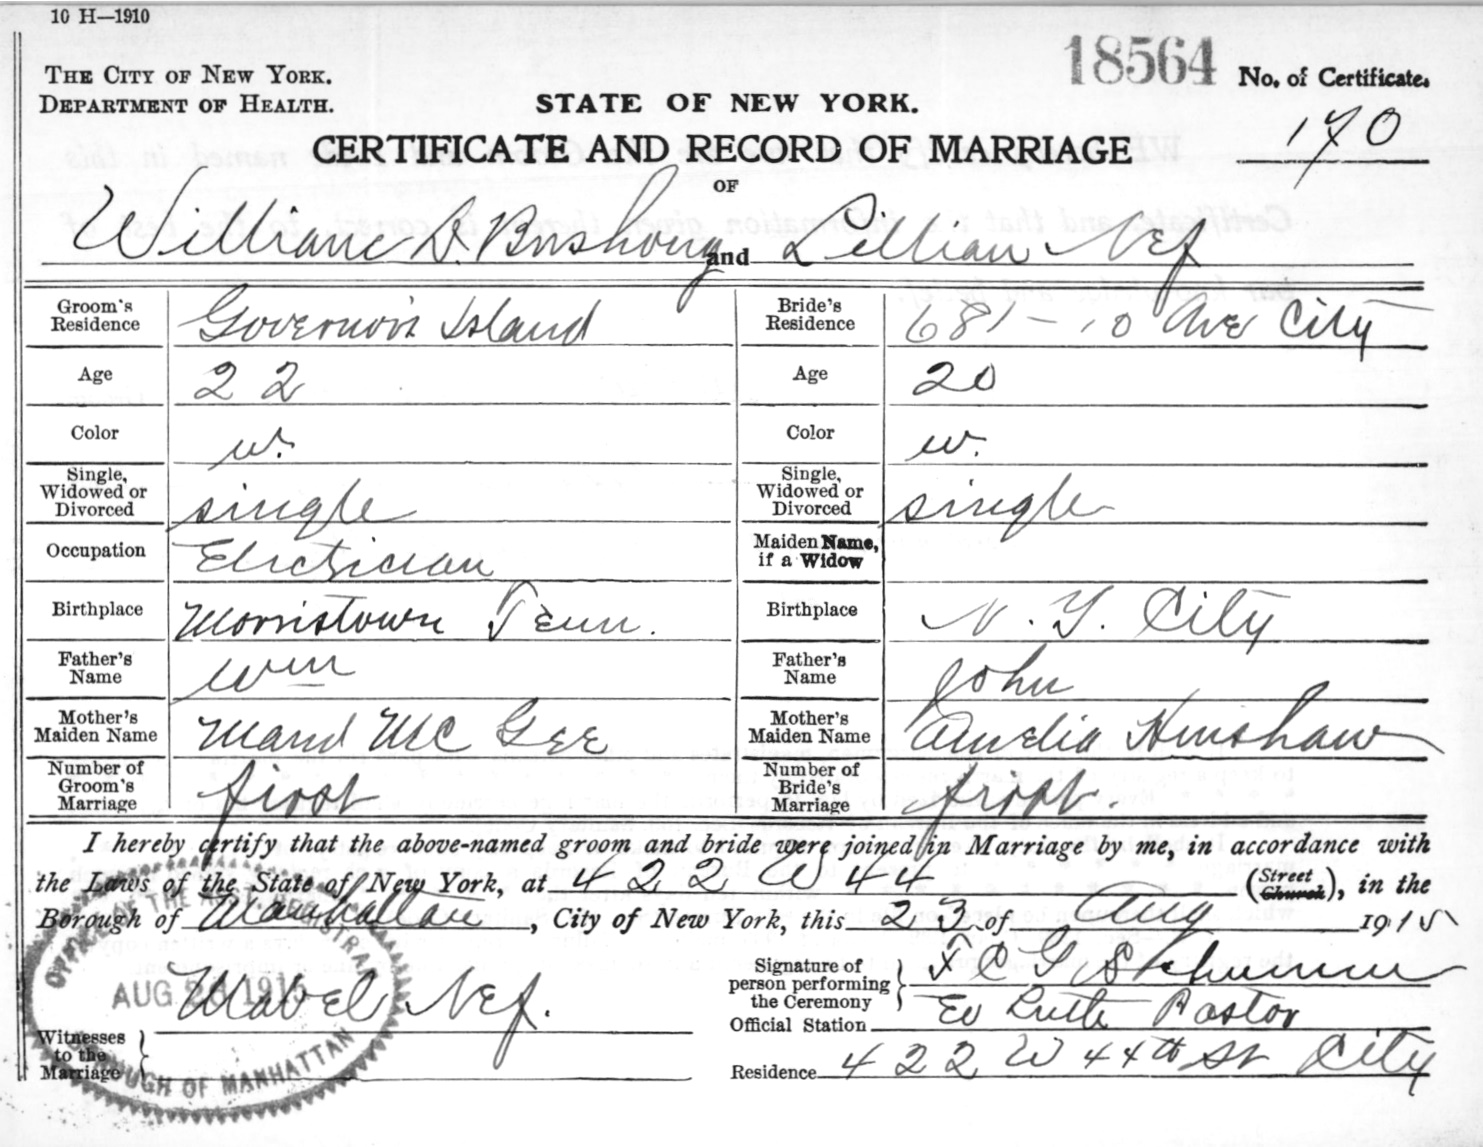 10 H—1910
THE CITY OF NEW YORK.
DEPARTMENT OF HEALTH.
18564 No. of Certificate.
STATE OF NEW YORK.
170
CERTIFICATE AND RECORD OF MARRIAGE
OF
William D. Bushong and Lillian Nef
Groom's Residence Governor's Island Bride's Residence 681 - 10 Ave City
Age 22 Age 20
Color w. Color w.
Single, Widowed or Divorced single Single, Widowed or Divorced single
Occupation Electician Maiden Name, if a Widow
Birthplace Morristown Tenn. Birthplace N. Y. City
Father's Name Wm Father's Name John
Mother's Maiden Name Maud Mc Gee Mother's Maiden Name Amelia Hinshaw
Number of Groom's Marriage first Number of Bride's Marriage first.
I hereby certify that the above-named groom and bride were joined in Marriage by me, in accordance with
the Laws of the State of New York, at 422 W 44 (Street Church), in the
Borough of Manhattan, City of New York, this 23 of Aug 1915
Signature of person performing the Ceremony F C G
Mabel Nef.
Official Station Ev Luth Pastor
Witnesses to the Marriage
Residence 422 W 44th St City
AUG 1915
BOROUGH OF MANHATTAN